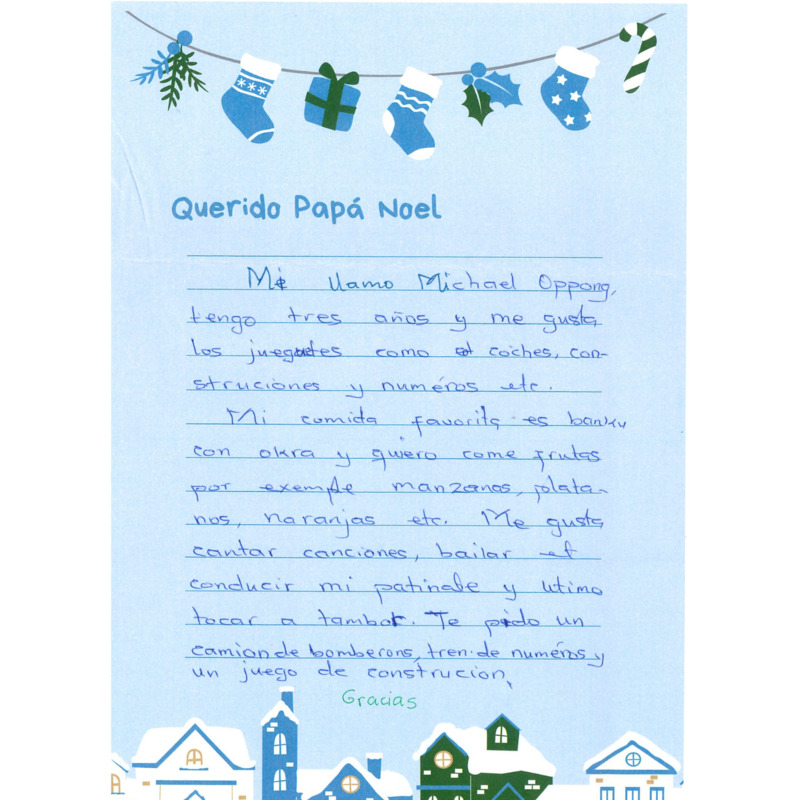 Querido Papá Noel
Me llamo Michael Oppong,
tengo tres años y me gusta
los juegetes como et coches, con-
struciones y numéros etc.
Mi comida favorita es banku
con okra y quiero come frutas
por exemple manzanas, plata-
nos, naranjas etc. Me gusta
cantar canciones, bailar et
conducir mi patinate y utimo
tocar a tambor. Te pido un
camion de bomberons, tren de numéros y
un juego de construcion,
Gracias